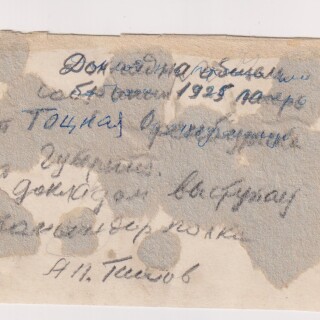 Доклад на общем
собрании 1925 лагерь
Тоцкая Оренбургск
Губерния.
докладом выступал
командир полка
А П. Титов